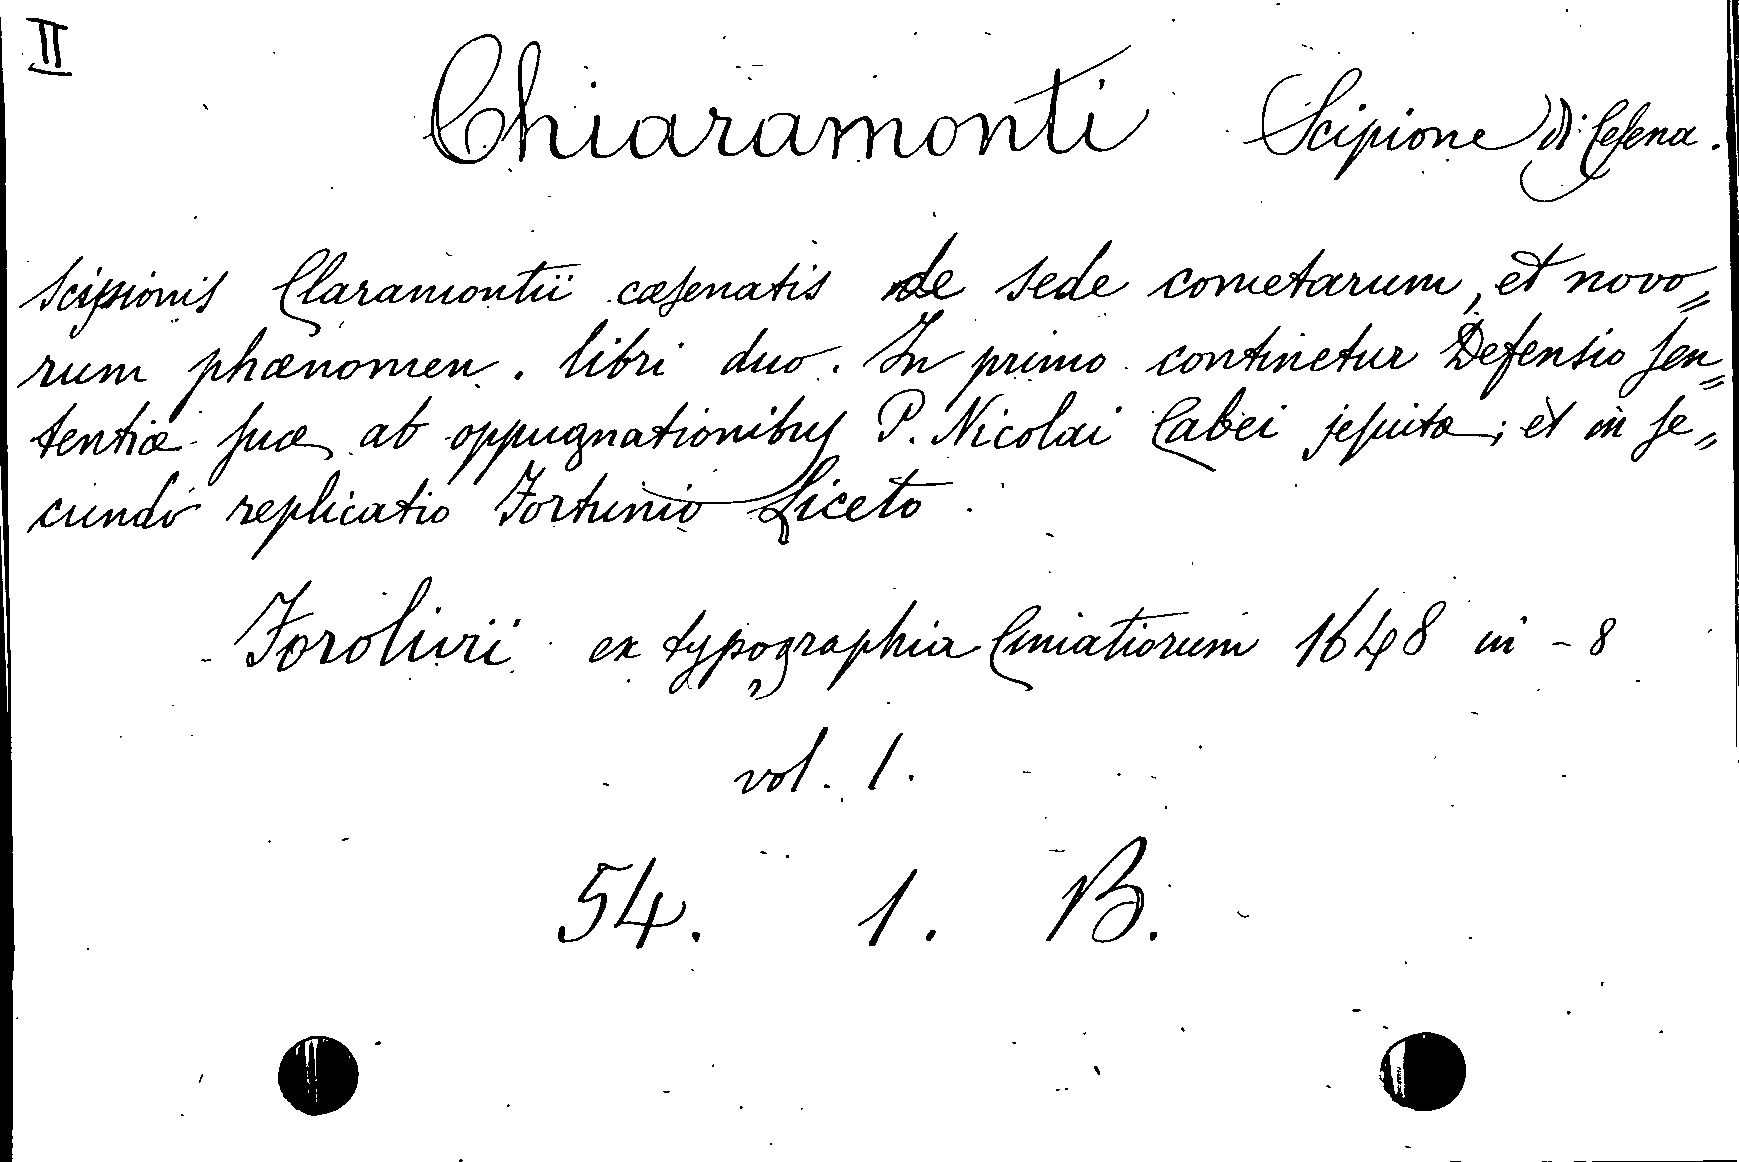 II
Chiaramonti Scipione di Cesena.
Scipionis Claramontii cæsenatis de sede cometarum, et novo=
rum phænomen. libri duo. In primo continetur Defensio sen=
tentiæ suæ ab oppugnationibus P. Nicolai Cabei jesuitæ; et in se=
cundo replicatio Fortunio Liceto.
Forolivii ex typographia Cimatiorum 1648 in - 8
vol. 1.
54. 1. B.